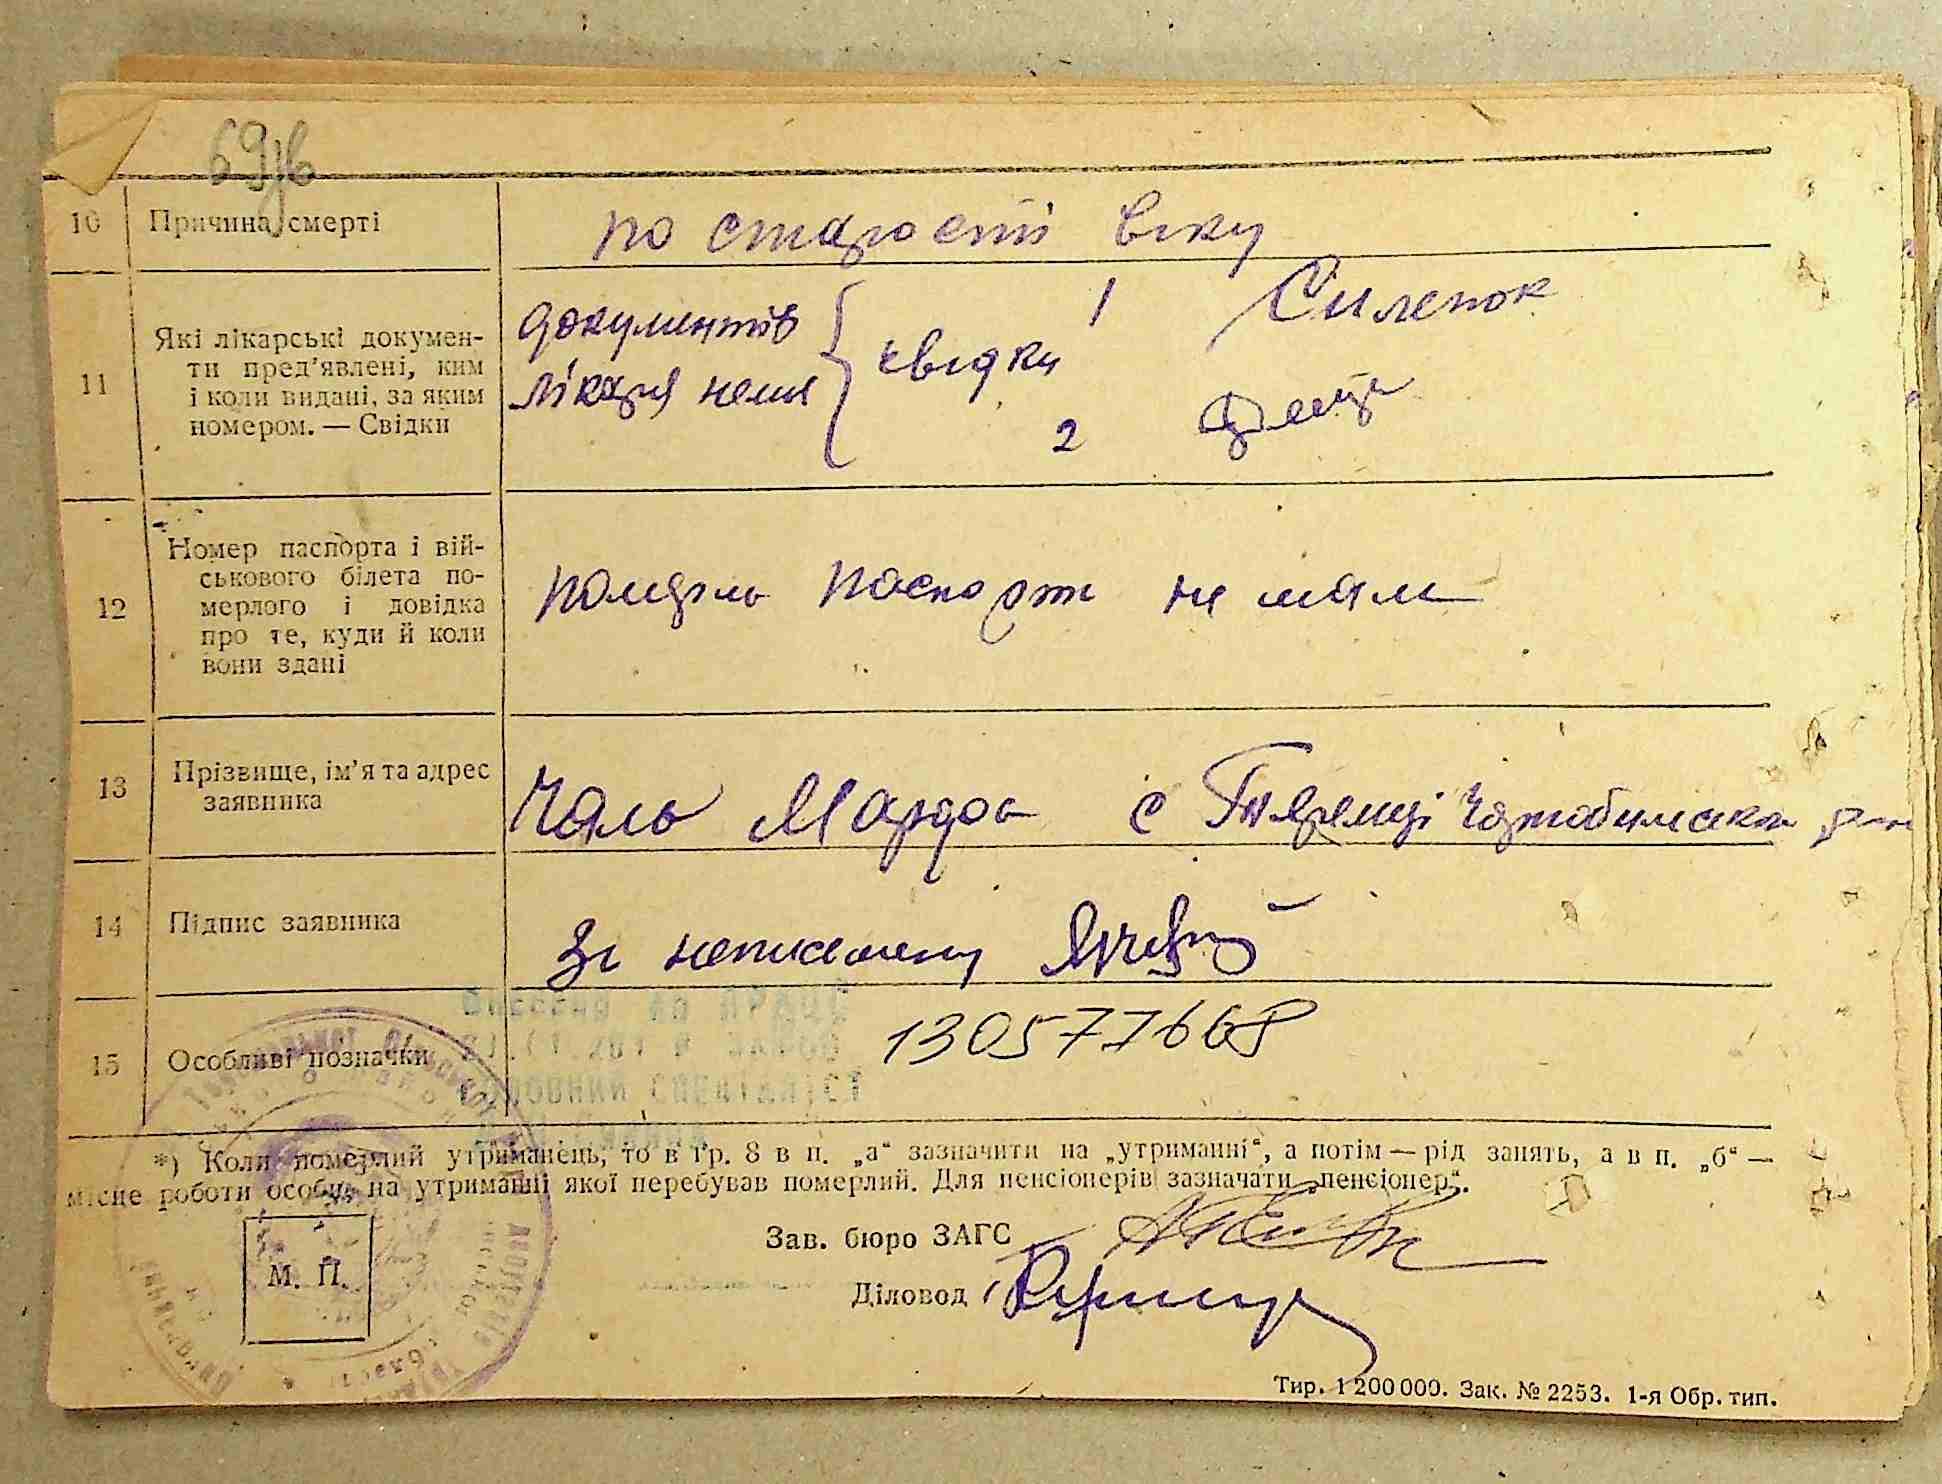 69/в
10 Причина смерті по старості віку
11 Які лікарські докумен-
ти пред'явлені, ким
і коли видані, за яким
номером. — Свідки
документів
лікаря нема
свідки
1 Силенок
2
12 Номер паспорта і вій-
ськового білета по-
мерлого і довідка
про те, куди й коли
вони здані
паспорт не мал
13 Прізвище, ім'я та адрес
заявника
Чаль с
14 Підпис заявника За неписьмену
15 Особливі позначки 130577668
*) Коли померлий утриманець, то в гр. 8 в п. „а“ зазначити на „утриманні“, а потім — рід занять, а в п. „б“ —
місце роботи особи, на утриманні якої перебував померлий. Для пенсіонерів зазначати „пенсіонер“.
М. П.
Зав. бюро ЗАГС
Діловод
Тир. 1 200 000. Зак. № 2253. 1-я Обр. тип.